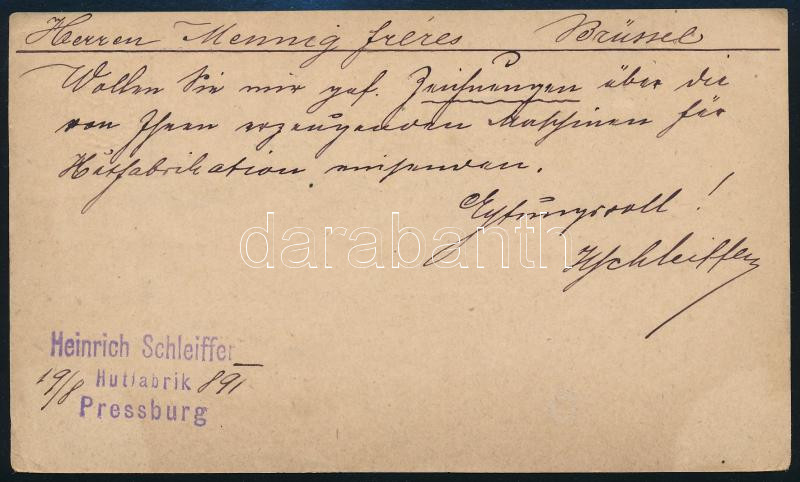 Herren Mennig frères Brüssel
Wollen Sie mir gef. Zeichnungen über die
von Ihnen erzeugenden Maschinen für
Hutfabrikation einsenden.
Achtungsvoll!
HSchleiffer
darabanth
Heinrich Schleiffer
19/8 Hutfabrik 891
Pressburg